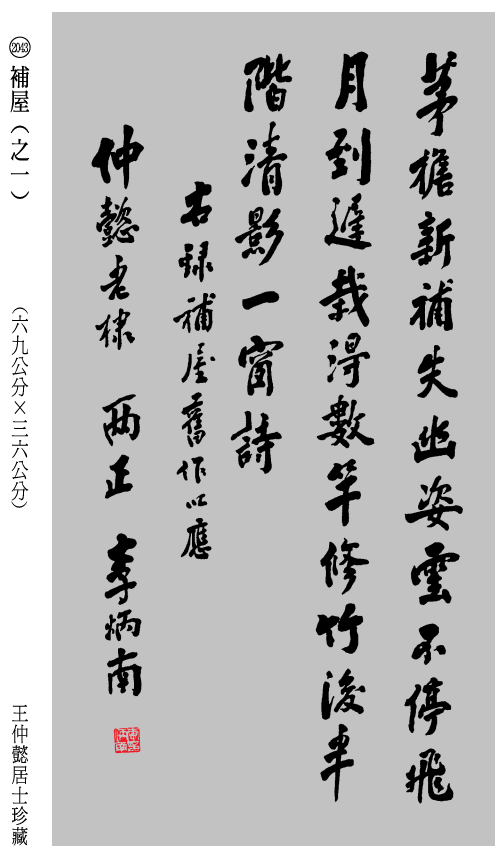 茅檐新補失幽姿雲不停飛
月到遲栽得數竿修竹後半
階清影一窗詩
右録補屋舊作以應
仲懿老棣 兩正 李炳南
2043 補屋（之一） （六九公分×三六公分） 王仲懿居士珍藏